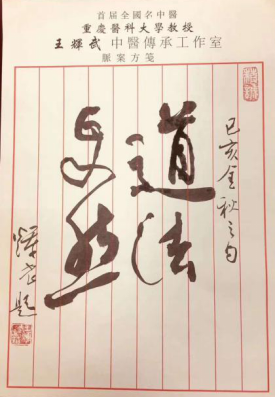 首届全國名中醫
重慶醫科大學教授
王輝武 中醫傳承工作室
脈案方箋
己亥金秋之
道法
自然
輝武題